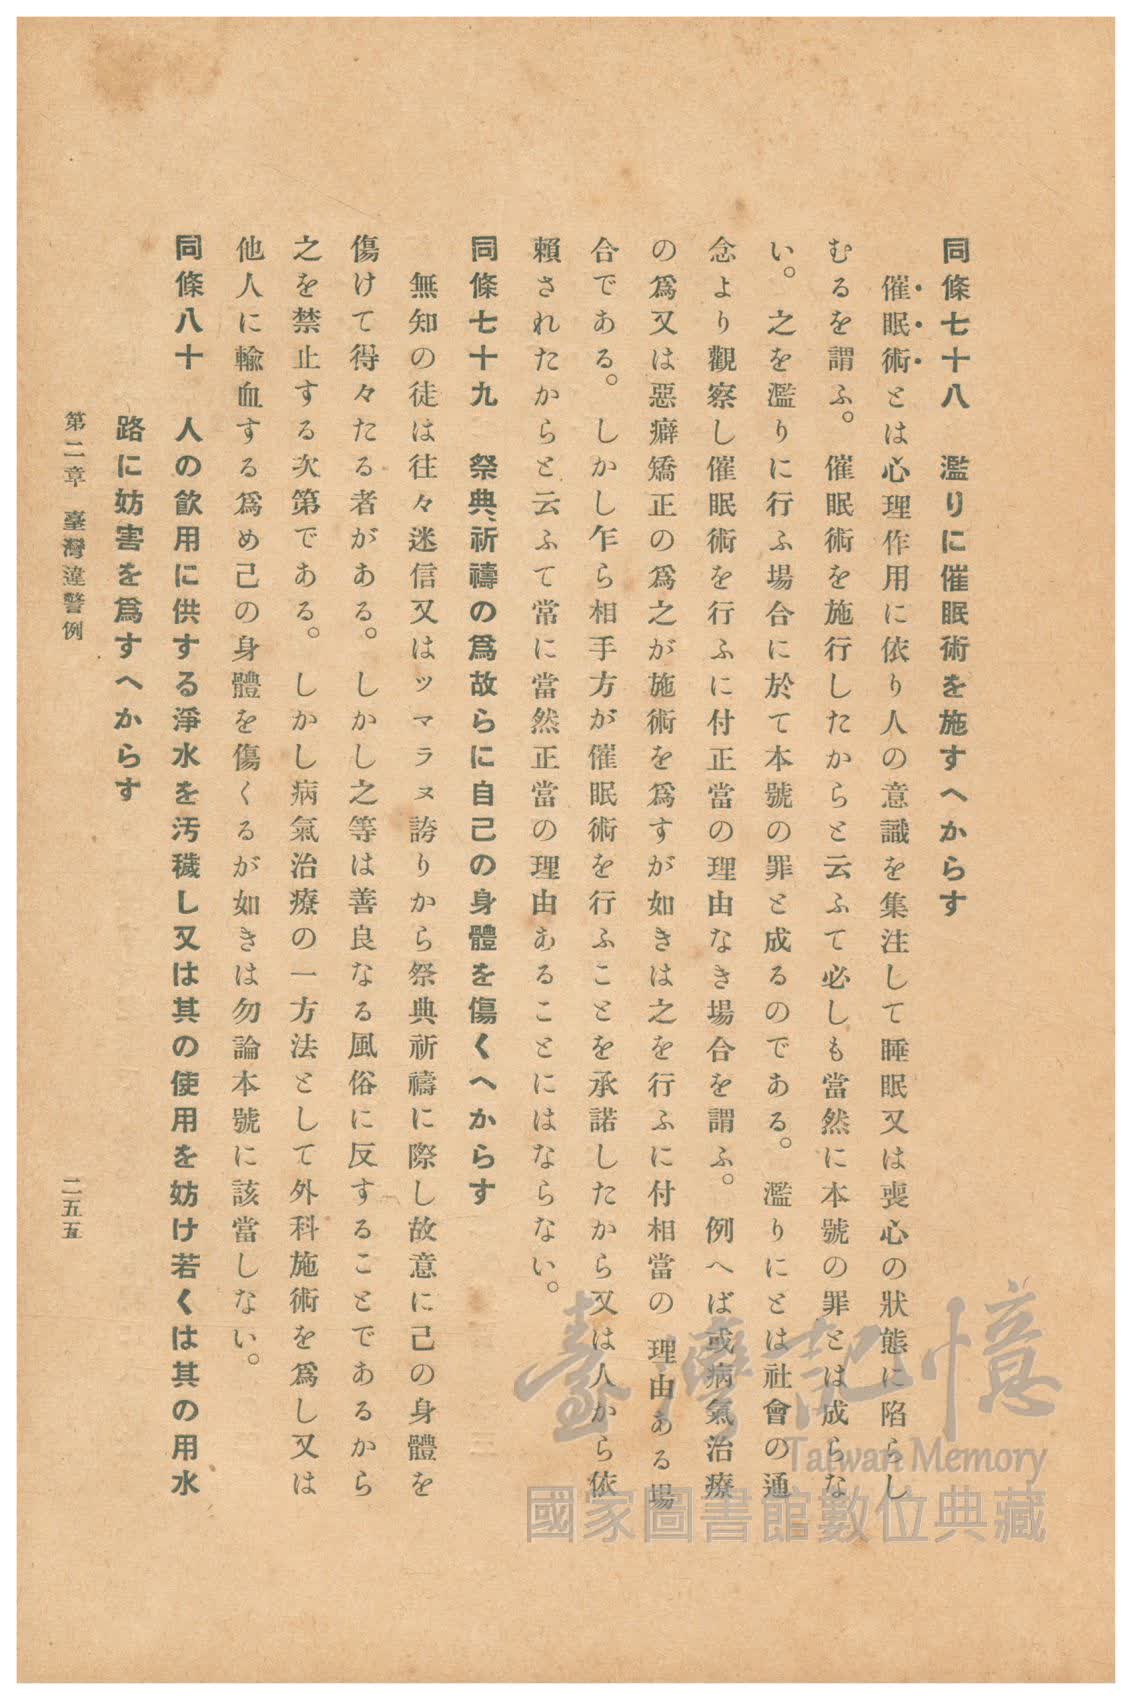 同條七十八　濫りに催眠術を施すへからす
催眠術とは心理作用に依り人の意識を集注して睡眠又は喪心の狀態に陷らし
むるを謂ふ。催眠術を施行したからと云ふて必しも當然に本號の罪とは成らな
い。之を濫りに行ふ場合に於て本號の罪と成るのである。濫りにとは社會の通
念より觀察し催眠術を行ふに付正當の理由なき場合を謂ふ。例へば或病氣治療
の爲又は惡癖矯正の爲之が施術を爲すが如きは之を行ふに付相當の理由ある場
合である。しかし乍ら相手方が催眠術を行ふことを承諾したから又は人から依
賴されたからと云ふて常に當然正當の理由あることにはならない。
同條七十九　祭典、祈禱の爲故らに自己の身體を傷くへからす
無知の徒は往々迷信又はツマラヌ誇りから祭典祈禱に際し故意に己の身體を
傷けて得々たる者がある。しかし之等は善良なる風俗に反することであるから
之を禁止する次第である。しかし病氣治療の一方法として外科施術を爲し又は
他人に輸血する爲め己の身體を傷くるが如きは勿論本號に該當しない。
同條八十　人の飮用に供する淨水を汚穢し又は其の使用を妨け若くは其の用水
路に妨害を爲すへからす
第二章　臺灣違警例
二五五
臺灣記憶
Taiwan Memory
國家圖書館數位典藏